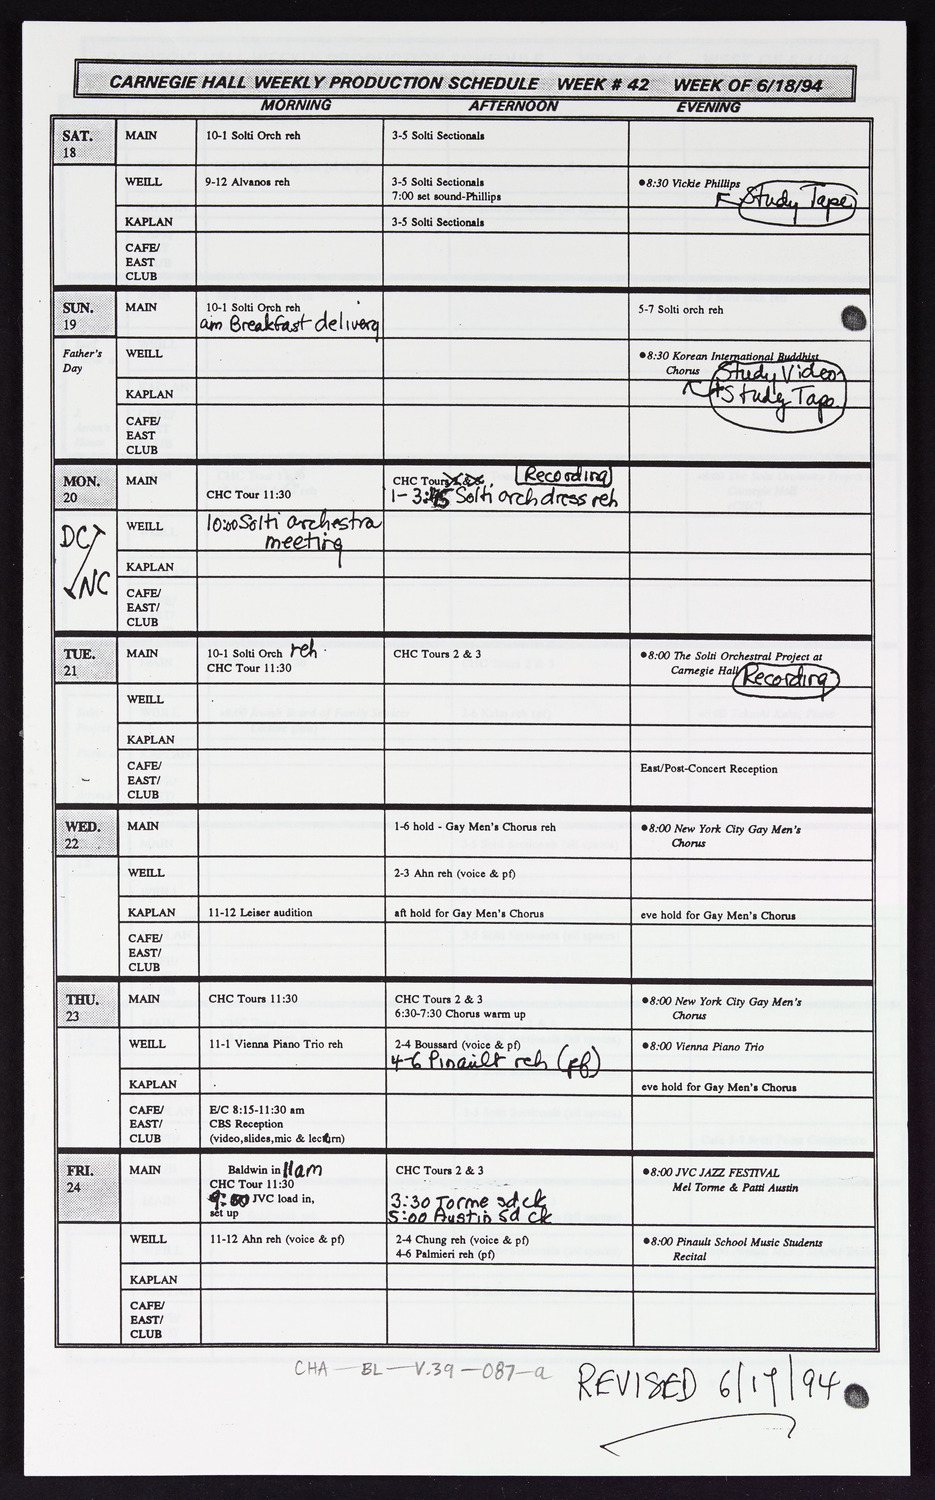 CARNEGIE HALL WEEKLY PRODUCTION SCHEDULE WEEK # 42 WEEK OF 6/18/94
MORNING AFTERNOON EVENING
SAT. 18
MAIN 10-1 Solti Orch reh 3-5 Solti Sectionals
WEILL 9-12 Alvanos reh 3-5 Solti Sectionals ●8:30 Vickie Phillips
7:00 set sound-Phillips Study Tape
KAPLAN 3-5 Solti Sectionals
CAFE/
EAST
CLUB
SUN. 19
MAIN 10-1 Solti Orch reh 5-7 Solti orch reh
am Breakfast delivery
Father's
Day
WEILL ●8:30 Korean International Buddhist
Chorus Study Video
+ Study Tape
KAPLAN
CAFE/
EAST
CLUB
MON. 20
MAIN CHC Tours 2 & 3 Recording
CHC Tour 11:30 1-3:45 Solti orch dress reh
DC
NC
WEILL 10:00 Solti orchestra
meeting
KAPLAN
CAFE/
EAST/
CLUB
TUE. 21
MAIN 10-1 Solti Orch reh CHC Tours 2 & 3 ●8:00 The Solti Orchestral Project at
CHC Tour 11:30 Carnegie Hall Recording
WEILL
KAPLAN
CAFE/ East/Post-Concert Reception
EAST/
CLUB
WED. 22
MAIN 1-6 hold - Gay Men's Chorus reh ●8:00 New York City Gay Men's
Chorus
WEILL 2-3 Ahn reh (voice & pf)
KAPLAN 11-12 Leiser audition aft hold for Gay Men's Chorus eve hold for Gay Men's Chorus
CAFE/
EAST/
CLUB
THU. 23
MAIN CHC Tours 11:30 CHC Tours 2 & 3 ●8:00 New York City Gay Men's
6:30-7:30 Chorus warm up Chorus
WEILL 11-1 Vienna Piano Trio reh 2-4 Boussard (voice & pf) ●8:00 Vienna Piano Trio
4-6 Pinault reh (pf)
KAPLAN eve hold for Gay Men's Chorus
CAFE/ E/C 8:15-11:30 am
EAST/ CBS Reception
CLUB (video,slides,mic & lectrn)
FRI. 24
MAIN Baldwin in 11am CHC Tours 2 & 3 ●8:00 JVC JAZZ FESTIVAL
CHC Tour 11:30 Mel Torme & Patti Austin
9:00 JVC load in, 3:30 Torme sd ck
set up 5:00 Austin sd ck
WEILL 11-12 Ahn reh (voice & pf) 2-4 Chung reh (voice & pf) ●8:00 Pinault School Music Students
4-6 Palmieri reh (pf) Recital
KAPLAN
CAFE/
EAST/
CLUB
CHA-BL-V.39-087-a
REVISED 6/17/94